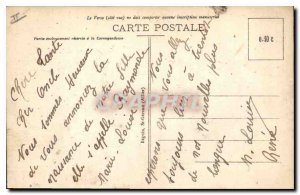 Le Verso (côté vue) ne doit comporter aucune inscription manuscrite
CARTE POSTALE
Partie exclusivement réservée à la Correspondance
0.60 c
Chère Tante
Cher Oncle
Nous sommes heureux
de vous annoncer la
naissance de notre fille
elle s'appelle Raymonde
Marie Louise
Nous
espérons que vous allez
toujours bien
de nos nouvelles plus
longue
M. Louise
René